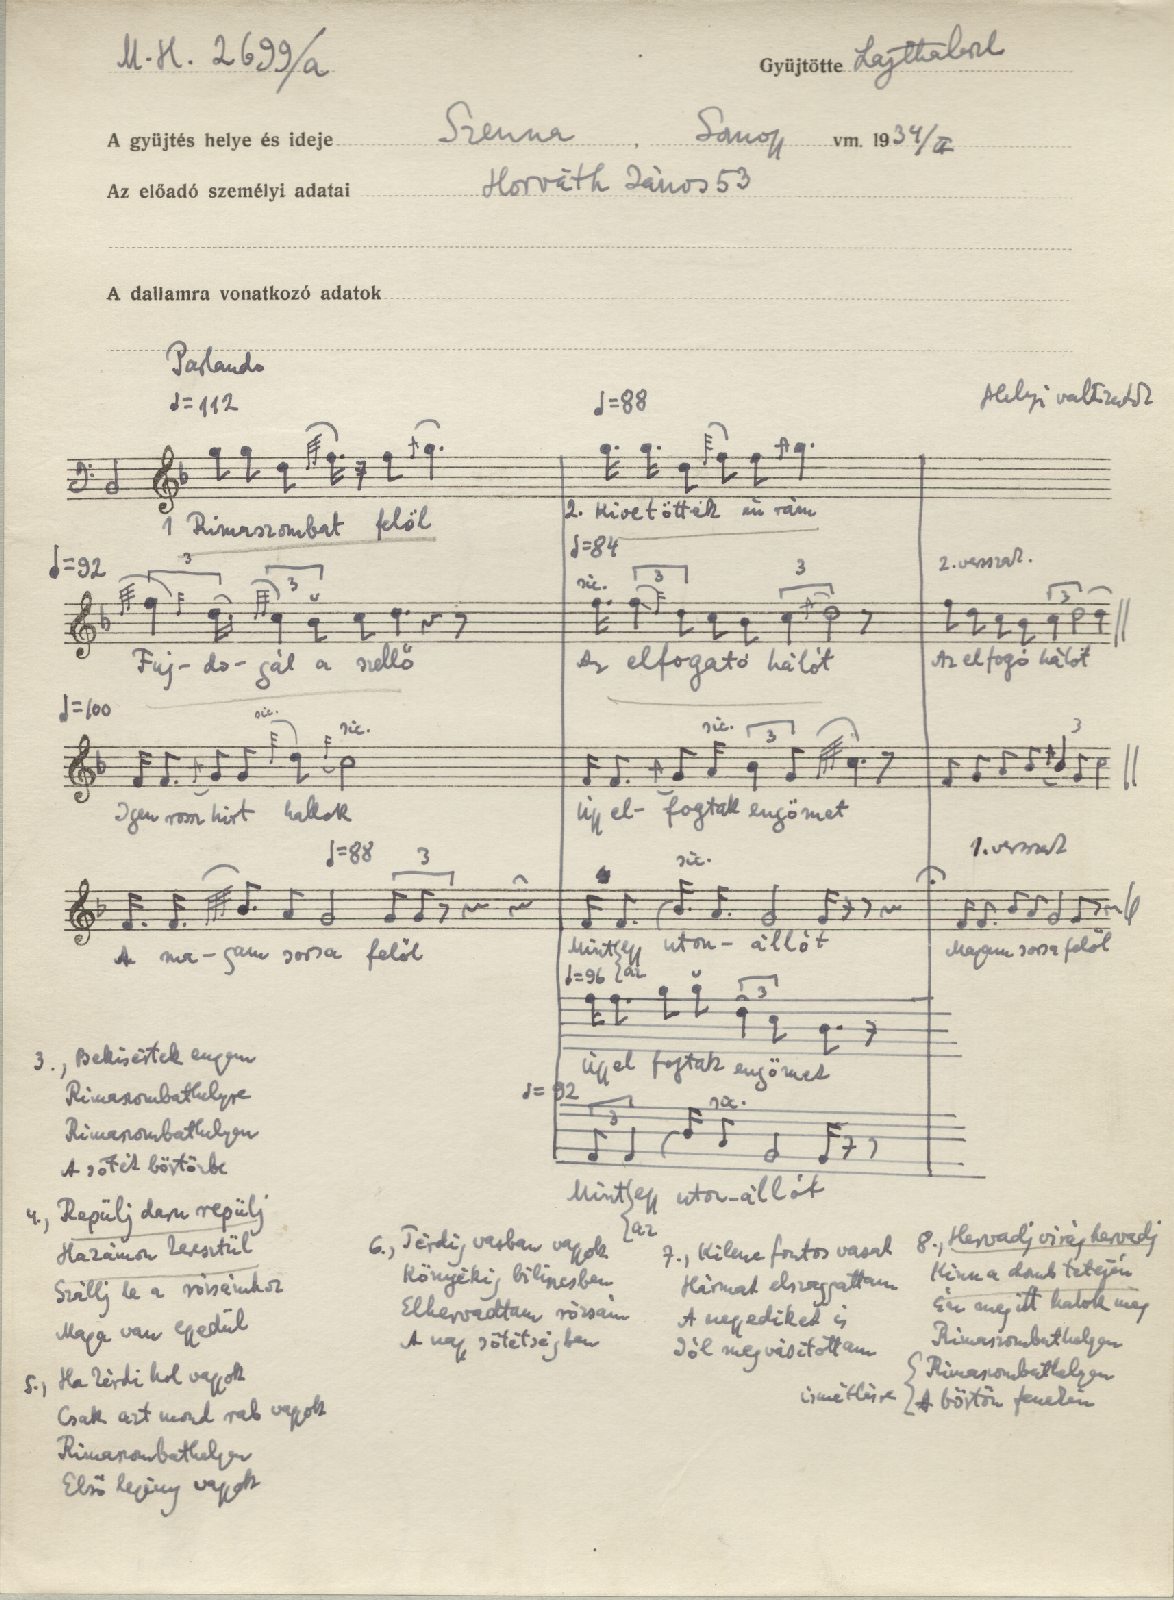 M.H. 2699/a
Gyüjtötte Lajtha László
A gyüjtés helye és ideje Szenna, Somogy vm. 1934/II
Az előadó személyi adatai Horváth János 53
A dallamra vonatkozó adatok
Parlando
♩=112
♩=88
1 Rimaszombat felől
2. Kivetötték én rám
♩=92
♩=84
2. versszak.
sic.
3
3
3
3
3
Fuj-do-gál a szellő
Az elfogató hálót
Az elfogó hálót
♩=100
sic.
sic.
sic.
3
3
Igen rossz hirt hallok
Úgy el-fogtak engömet
♩=88
3
sic.
1. versszak
A ma-gam sorsa felől
Mint {egy uton-állót
{az
Magam sorsa felől
♩=96
3
Úgy el fogtak engömet
♩=92
3
sic.
Mint {egy uton-állót
{az
3., Bekisértek engem
Rimaszombathelyre
Rimaszombathelyen
A sötét börtönbe
4., Repülj daru repülj
Hazámon keresztül
Szállj le a rózsámhoz
Maga van egyedül
5., Ha kérdi hol vagyok
Csak azt mond rab vagyok
Rimaszombathelyen
Első legény vagyok
6., Térdig vasban vagyok
Könyékig bilincsben
Elhervadtam rózsám
A nagy sötétségben
7., Kilenc fontos vasat
Hármat elszaggattam
A negyediket is
Jól megvásitottam
8., Hervadj virág hervadj
Kinn a domb tetején
Én meg itt halok meg
Rimaszombathelyen
ismétlésre { Rimaszombathelyen
A börtön fenekén